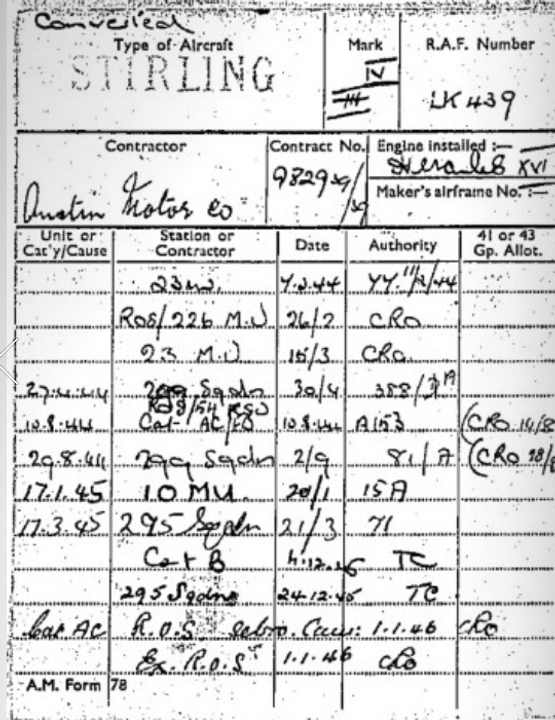 Converted
Type of Aircraft Mark R.A.F. Number
STIRLING IV III LK439
Contractor Contract No. Engine installed :— Hercules XVI
Austin Motor Co 9829/39/ Maker's airframe No. :—
Unit or Cat'y/Cause Station or Contractor Date Authority 41 or 43 Gp. Allot.
23 MU. 7.2.44 YY. 11/2/44
ROS/226 M.U 26/2 CRO
23 M.U 15/3 CRO
27.4.44 299 Sqdn 30/4 388/
ROS/54 RSU
10.8.44 Cat AC/FO 10.8.44 A153 (CRO 14/8
29.8.44 299 Sqdn 2/9 81/A (CRO
17.1.45 10 MU. 20/1 15A
17.3.45 295 Sqdn 21/3 71
Cat B 4.12. TC
295 Sqdn 24.12.45 TC
Cat AC R.O.S. 1.1.46 CRO
Ex. R.O.S 1.1.46 CRO
A.M. Form 78